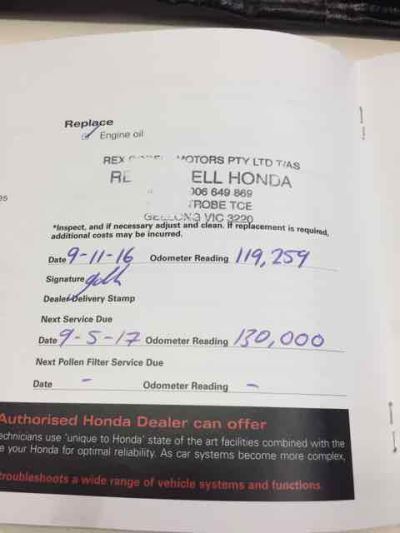 Replace
Engine oil
REX MOTORS PTY LTD T/AS
ELL HONDA
006 649 869
TCE
VIC 3220
*Inspect, and if necessary adjust and clean. If replacement is required,
additional costs may be incurred.
Date 9-11-16 Odometer Reading 119,259
Signature
Dealer Delivery Stamp
Next Service Due
Date 9-5-17 Odometer Reading 130,000
Next Pollen Filter Service Due
Date - Odometer Reading -
Authorised Honda Dealer can offer
echnicians use 'unique to Honda' state of the art facilities combined with the
e your Honda for optimal reliability. As car systems become more complex,
troubleshoots a wide range of vehicle systems and functions